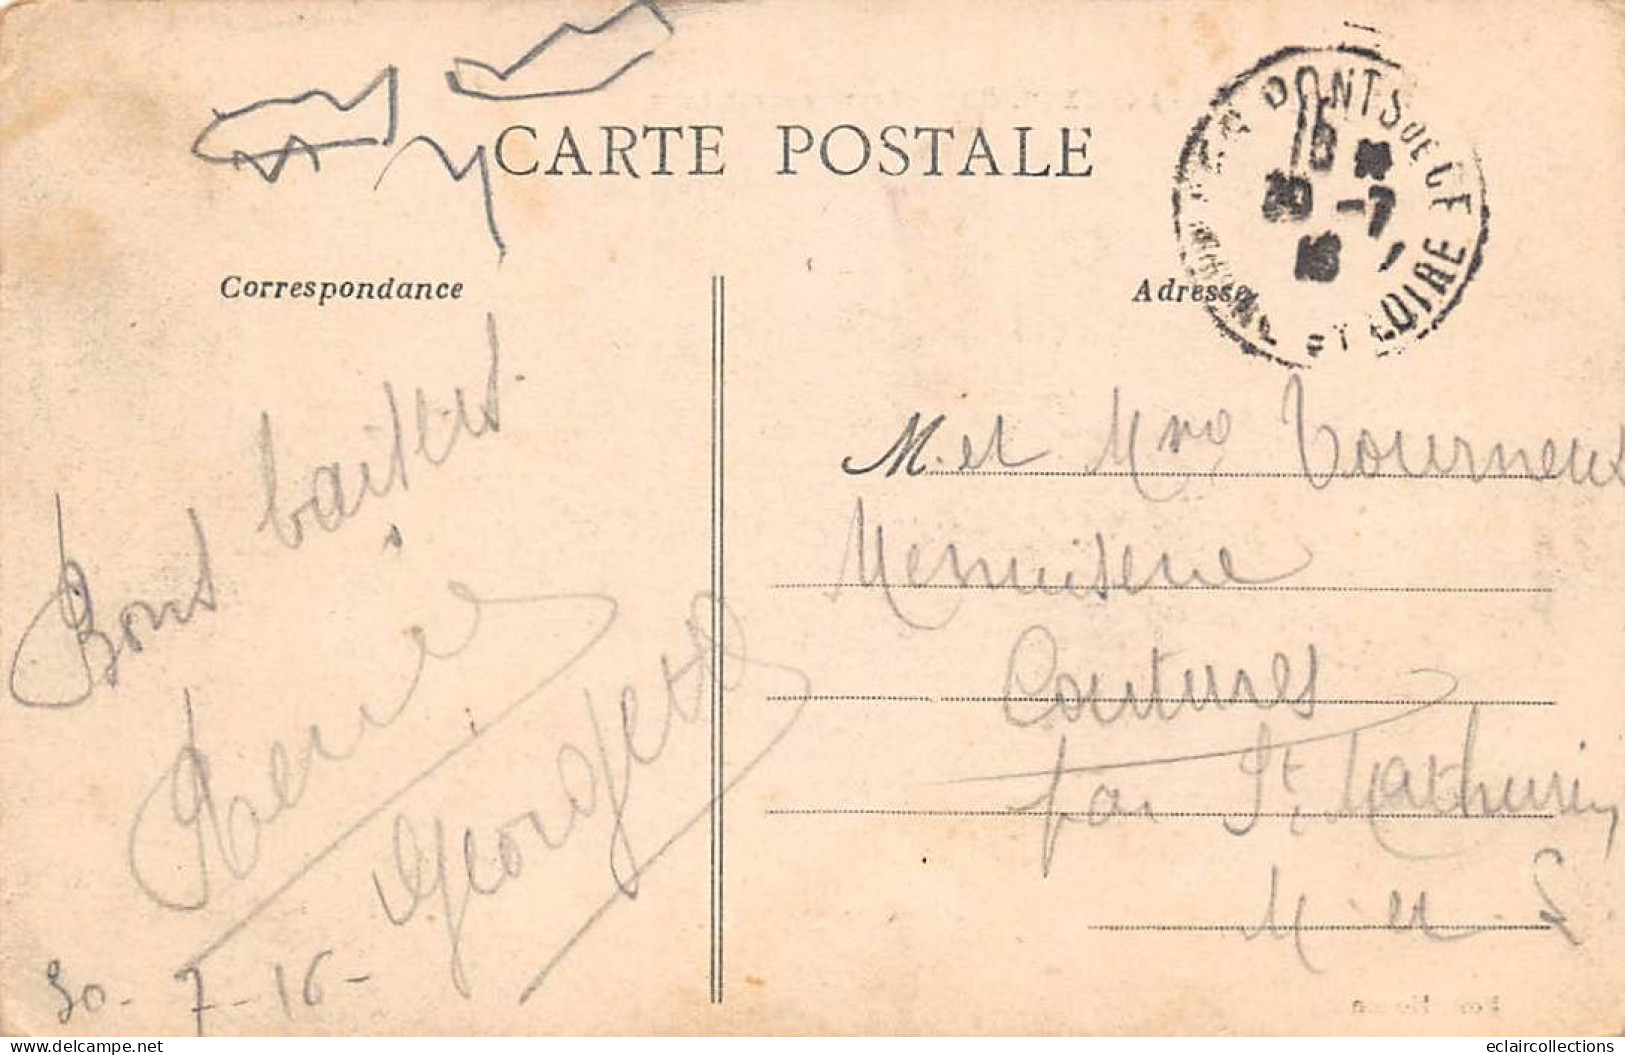 CARTE POSTALE
LES PONTS DE CÉ
20 -7
16
MAINE ET LOIRE
Correspondance
Adresse
Bons baisers
Renée
Georgette
30-7-16-
M. et Mme Tourneux
Menuiserie
Coutures
par St. Mathurin
M. et L.
eclaircollections